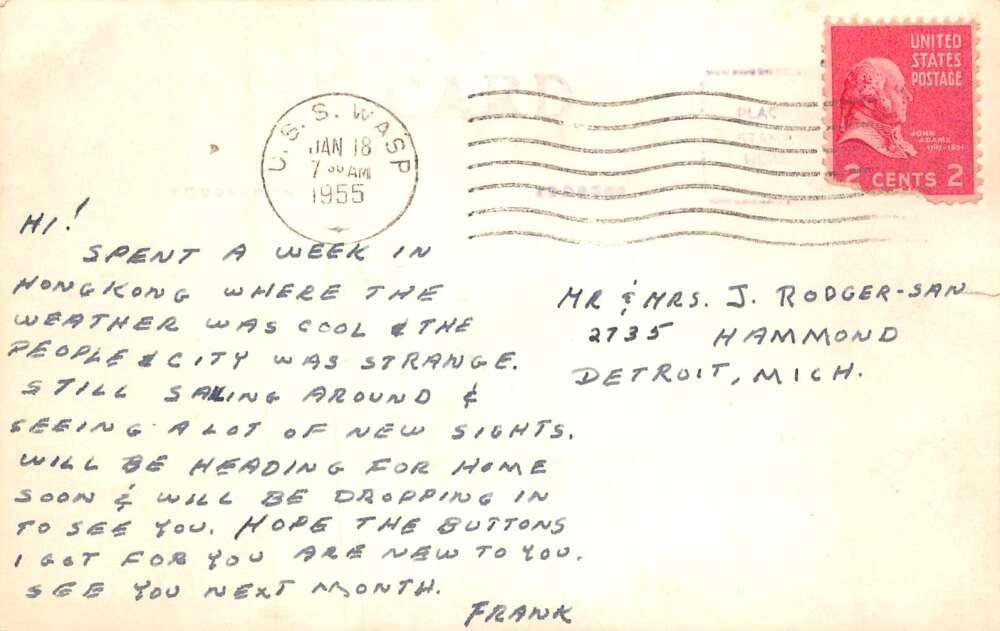 U.S.S. WASP
JAN 18
7 00 AM
1955
UNITED
STATES
POSTAGE
JOHN
ADAMS
1797-1801
2 CENTS 2
HI!
SPENT A WEEK IN
HONGKONG WHERE THE
WEATHER WAS COOL & THE
PEOPLE & CITY WAS STRANGE.
STILL SAILING AROUND &
SEEING A LOT OF NEW SIGHTS.
WILL BE HEADING FOR HOME
SOON & WILL BE DROPPING IN
TO SEE YOU. HOPE THE BUTTONS
I GOT FOR YOU ARE NEW TO YOU.
SEE YOU NEXT MONTH.
FRANK
MR & MRS. J. RODGER-SAN
2735 HAMMOND
DETROIT, MICH.